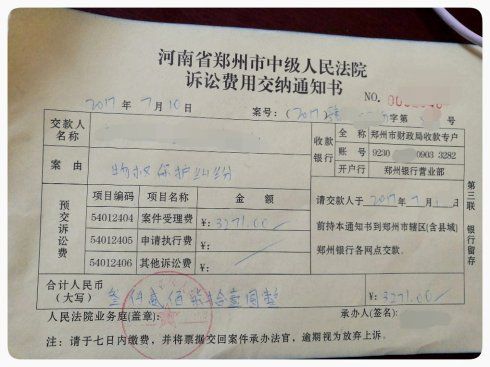 河南省郑州市中级人民法院
诉讼费用交纳通知书
NO.
2017年7月10日 案号：（2017） 字第 号
交款人名称
收款银行
全称 郑州市财政局收款专户
账号 9230 0903 3282
开户行 郑州银行营业部
案由 物权保护纠纷
预交诉讼费
项目编码 项目名称 金额
54012404 案件受理费 ¥：3271.00
54012405 申请执行费 ¥：
54012406 其他诉讼费 ¥：
请交款人于2017年7月 日
前持本通知到郑州市辖区(含县城)
郑州银行各网点交款。
第三联 银行留存
合计人民币（大写） 叁仟贰佰柒拾壹圆整 ¥：3271.00
人民法院业务庭(盖章)： 承办人(签名)：
注：请于七日内缴费，并将票据交回案件承办法官，逾期视为放弃上诉。